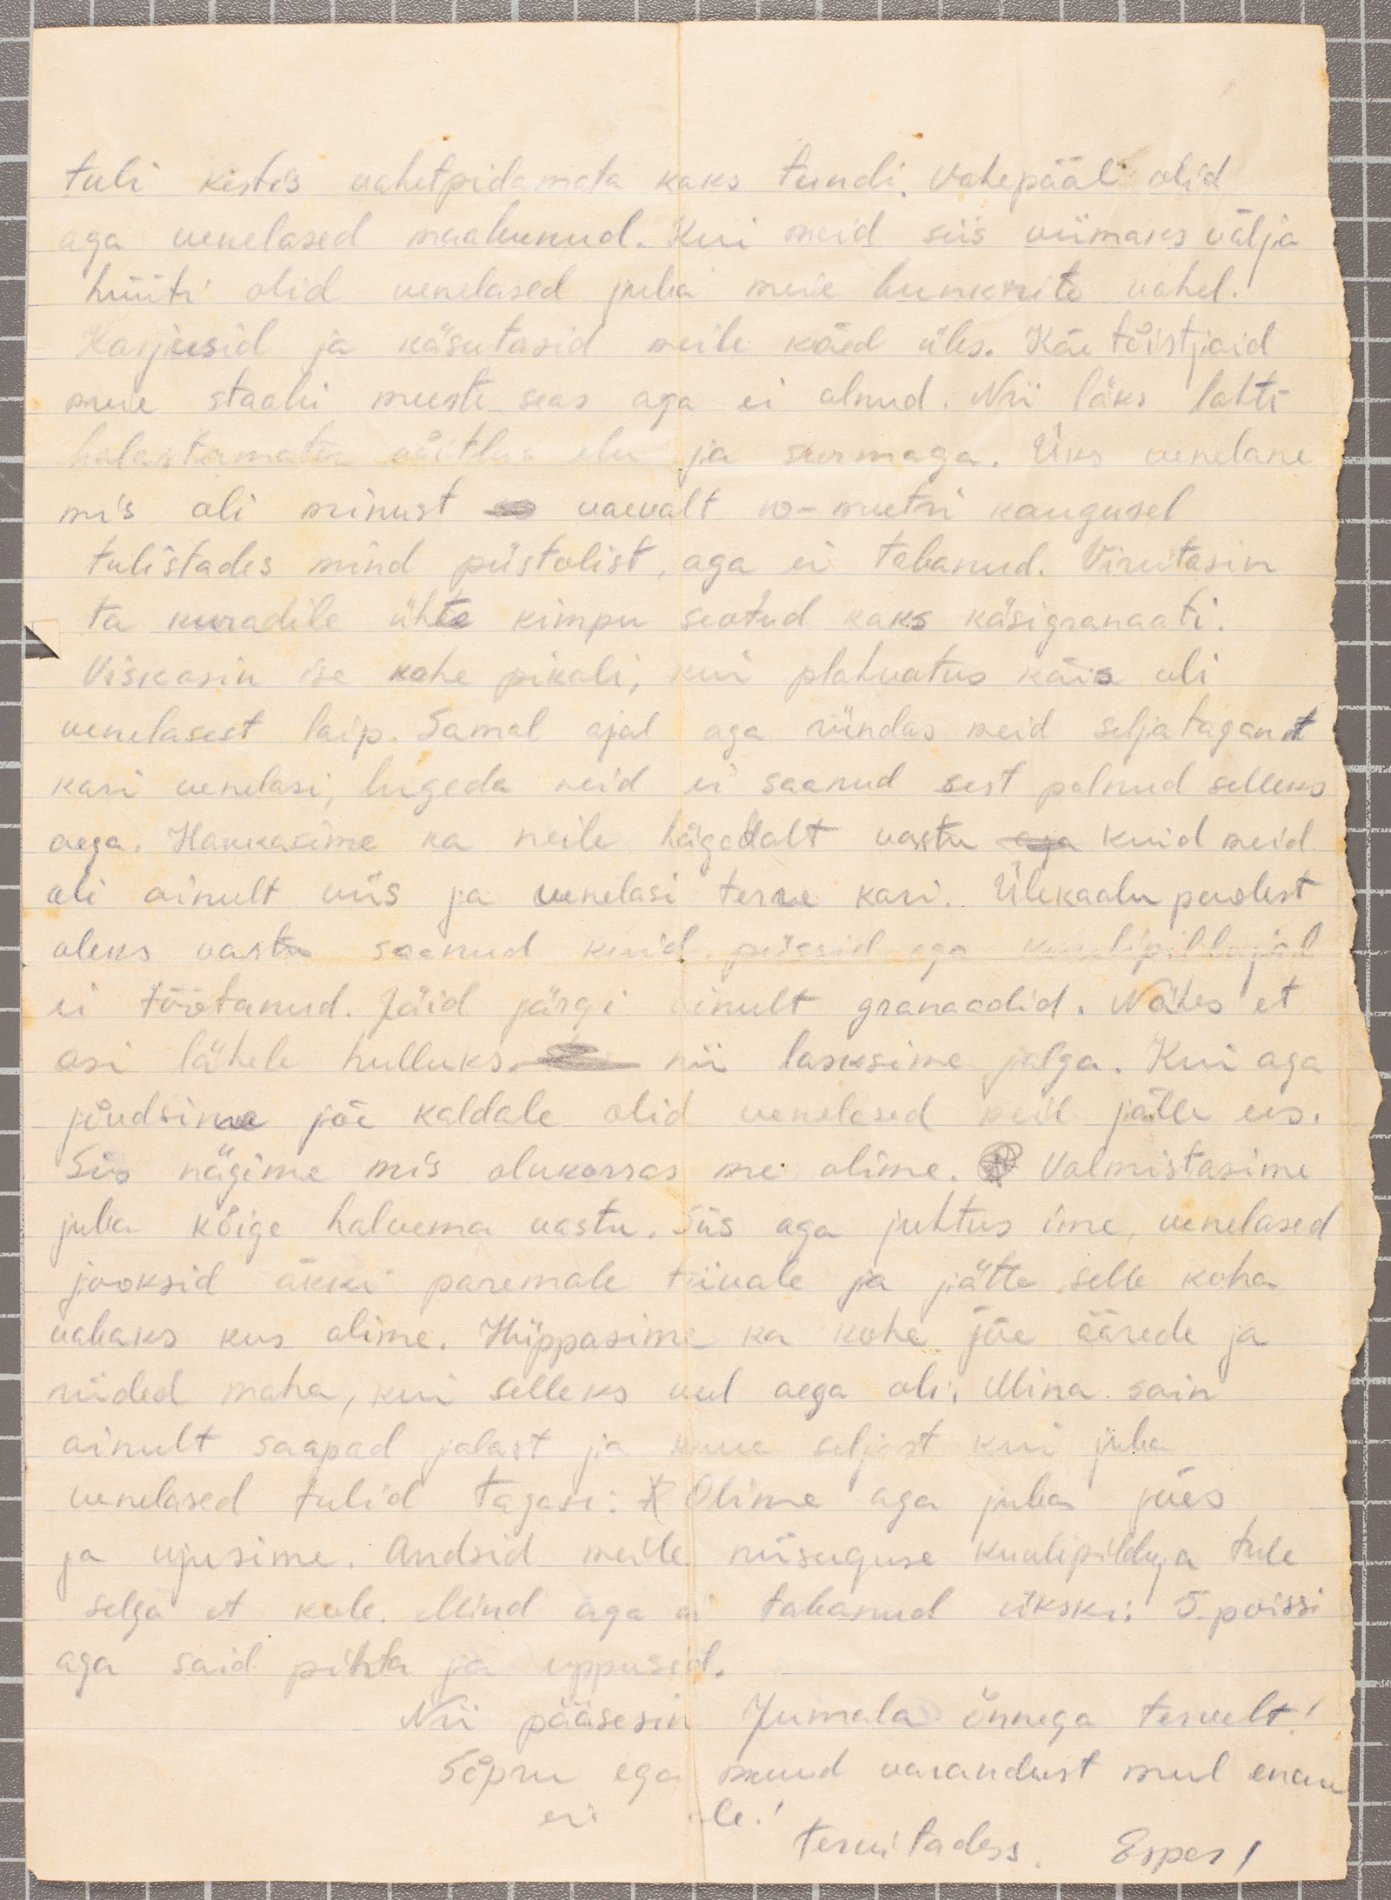 tuli kestis vahetpidamata kaks tundi. Vahepääl olid
aga venelased maabunud. Kui meid siis viimaks välja
hüüti olid venelased juba meie bunkrite vahel.
Karjusid ja käsutasid meile käed üles. Käe tõistjaid
meie staabi meeste seas aga ei olnud. Nii läks lahti
halastamatu võitlus elu ja surmaga. Üks venelane
mis oli minust vaevalt 10-meetri kaugusel
tulistades mind püstolist, aga ei tabanud. Virutasin
ta kuradile ühte kimpu seotud kaks käsigranaati.
Viskasin ise kohe pikali, kui plahvatus käis oli
venelasest laip. Samal ajal aga ründas meid seljatagant
kari venelasi, lugeda neid ei saanud sest polnud selleks
aega. Hakkasime ka neile hägedalt vastu aga kuid meid
oli ainult viis ja venelasi terve kari. Ülekaalu poolest
oleks vastu saanud kuid püssid ega kuulipildujad
ei töötanud. Jäid järgi ainult granaadid. Nähes et
asi lähele hulluks nii lasksime jalga. Kui aga
jõudsime jõe kaldale olid venelased meil jälle ees.
Siis nägime mis olukorras me olime. Valmistasime
juba kõige halvema vastu. Siis aga juhtus ime, venelased
jooksid äkki paremale tiivale ja jätte selle koha
vabaks kus olime. Hüppasime ka kohe jõe äärede ja
riided maha, kui selleks veel aega oli. Mina sain
ainult saapad jalast ja kuue seljast kui juba
venelased tulid tagasi: Olime aga juba jões
ja ujusime. Andsid meile niisuguse kuulipilduja tule
selga et kole. Mind aga ei tabanud ükski. 5 poissi
aga said pihta ja uppusid.
Nii pääsesin Jumala õnnega tervelt!
Sõpru ega muud varandust mul enam
ei ole!
Tervitades. Esper!